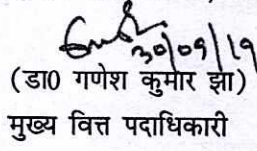 30/09/19
(डा0 गणेश कुमार झा)
मुख्य वित्त पदाधिकारी